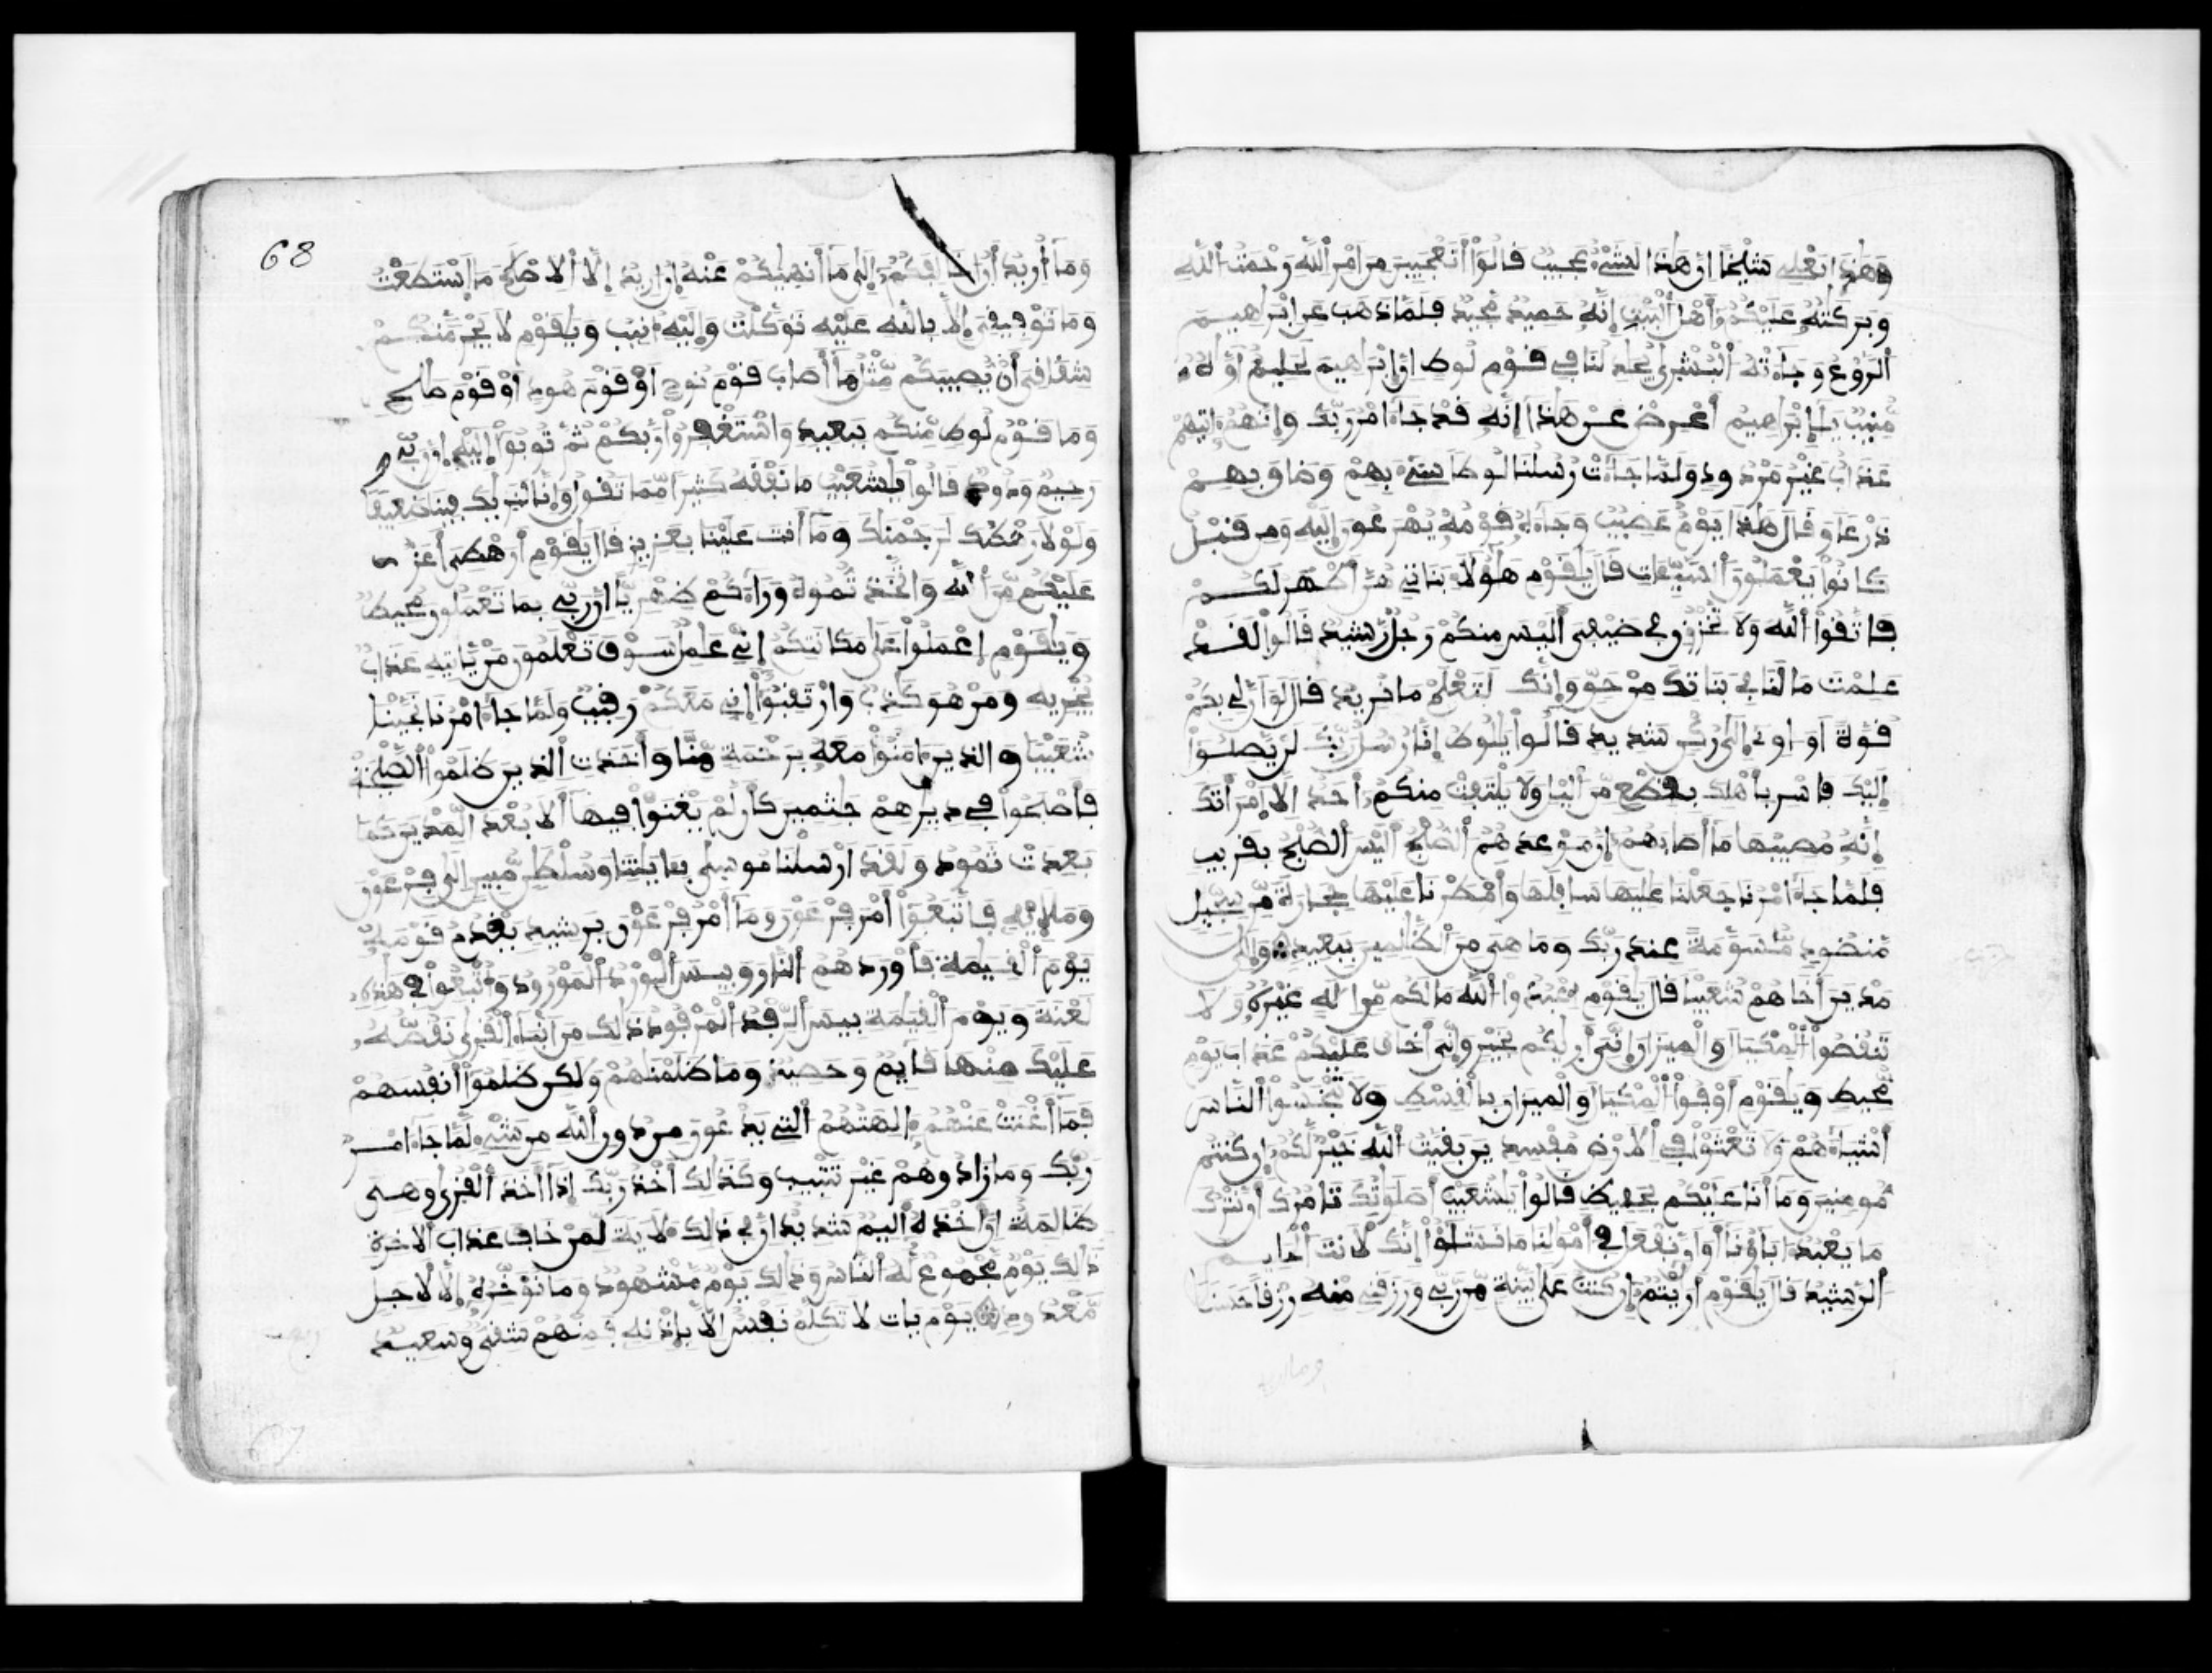 وَهَٰذَا بَعْلِي شَيْخًا إن هَٰذَا لَشَيْءٌ عَجِيبٌ قَالُوٓا أَتَعْجَبِينَ مِنَ امْرِ اللَّهِ رَحْمَتُ اللَّهِ
وَبَرَكَٰتُهُ عَلَيْكُمُ أَهْلَ الْبَيْتِ إِنَّهُ حَمِيدٌ مَجِيدٌ فَلَمَّا ذَهَبَ عَنِ ابْرَاهِيمَ
الرَّوْعُ وَجَآءَتْهُ الْبُشْرَىٰ يُجَٰدِلُنَا فِي قَوْمِ لُوطٍ إِنَّ إِبْرَاهِيمَ لَحَلِيمٌ أَوَّٰهٌ
مُّنِيبٌ يَٰٓإِبْرَاهِيمُ أَعْرِضْ عَنْ هَٰذَآ إِنَّهُ قَدْ جَآءَ امْرُ رَبِّكَ وَإِنَّهُمُۥ ءَاتِيهِمْ
عَذَابٌ غَيْرُ مَرْدُودٍ وَلَمَّا جَآءَتْ رُسُلُنَا لُوطًا سِيٓءَ بِهِمْ وَضَاقَ بِهِمْ
ذَرْعًا وَقَالَ هَٰذَا يَوْمٌ عَصِيبٌ وَجَآءَهُ قَوْمُهُ يُهْرَعُونَ إِلَيْهِ وَمِن قَبْلُ
كَانُوا يَعْمَلُونَ السَّيِّـَٔاتِ قَالَ يَٰقَوْمِ هَٰٓؤُلَآءِ بَنَاتِي هُنَّ أَطْهَرُ لَكُمْ
فَاتَّقُوا اللَّهَ وَلَا تُخْزُونِ فِي ضَيْفِيَ أَلَيْسَ مِنكُمْ رَجُلٌ رَّشِيدٌ قَالُوا لَقَدْ
عَلِمْتَ مَا لَنَا فِي بَنَاتِكَ مِنْ حَقٍّ وَإِنَّكَ لَتَعْلَمُ مَا نُرِيدُ قَالَ لَوَ انَّ لِي بِكُمْ
قُوَّةً اَوَ اوِي إِلَىٰ رُكْنٍ شَدِيدٍ قَالُوا يَٰلُوطُ إِنَّا رُسُلُ رَبِّكَ لَنْ يَّصِلُوٓا
إِلَيْكَ فَاسْرِ بِأَهْلِكَ بِقِطْعٍ مِّنَ الَّيْلِ وَلَا يَلْتَفِتْ مِنكُمُۥٓ أَحَدٌ اِلَّا امْرَأَتَكَ
إِنَّهُ مُصِيبُهَا مَآ أَصَابَهُمُۥٓ إِنَّ مَوْعِدَهُمُ الصُّبْحُ أَلَيْسَ الصُّبْحُ بِقَرِيبٍ
فَلَمَّا جَآءَ امْرُنَا جَعَلْنَا عَٰلِيَهَا سَافِلَهَا وَأَمْطَرْنَا عَلَيْهَا حِجَارَةً مِّن سِجِّيلٍ
مَّنضُودٍ مُّسَوَّمَةً عِندَ رَبِّكَ وَمَا هِيَ مِنَ الظَّٰلِمِينَ بِبَعِيدٍ وَإِلَىٰ
مَدْيَنَ أَخَاهُمْ شُعَيْبًا قَالَ يَٰقَوْمِ اعْبُدُوا اللَّهَ مَا لَكُم مِّنِ الَٰهٍ غَيْرُهُ وَلَا
تَنقُصُوا الْمِكْيَالَ وَالْمِيزَانَ إِنِّيَ أَرَىٰكُم بِخَيْرٍ وَإِنِّيَ أَخَافُ عَلَيْكُمْ عَذَابَ يَوْمٍ
مُّحِيطٍ وَيَٰقَوْمِ أَوْفُوا الْمِكْيَالَ وَالْمِيزَانَ بِالْقِسْطِ وَلَا تَبْخَسُوا النَّاسَ
أَشْيَآءَهُمْ وَلَا تَعْثَوْا فِي الَارْضِ مُفْسِدِينَ بَقِيَّتُ اللَّهِ خَيْرٌ لَّكُمُۥٓ إِن كُنتُم
مُّومِنِينَ وَمَآ أَنَا عَلَيْكُم بِحَفِيظٍ قَالُوا يَٰشُعَيْبُ أَصَلَوَٰتُكَ تَامُرُكَ أَن نَّتْرُكَ
مَا يَعْبُدُ ءَابَآؤُنَآ أَوَ ان نَّفْعَلَ فِي أَمْوَٰلِنَا مَا نَشَٰٓؤُا إِنَّكَ لَأَنتَ الْحَلِيمُ
الرَّشِيدُ قَالَ يَٰقَوْمِ أَرَٰيْتُمُۥٓ إِن كُنتُ عَلَىٰ بَيِّنَةٍ مِّن رَّبِّي وَرَزَقَنِي مِنْهُ رِزْقًا حَسَنًا
68
وَمَآ أُرِيدُ أَنُ اخَالِفَكُمُۥٓ إِلَىٰ مَآ أَنْهَىٰكُمْ عَنْهُ إِنُ ارِيدُ إِلَّا الِاصْلَٰحَ مَا اسْتَطَعْتُ
وَمَا تَوْفِيقِيَ إِلَّا بِاللَّهِ عَلَيْهِ تَوَكَّلْتُ وَإِلَيْهِ أُنِيبُ وَيَٰقَوْمِ لَا يَجْرِمَنَّكُمْ
شِقَاقِيَ أَنْ يُّصِيبَكُم مِّثْلُ مَآ أَصَابَ قَوْمَ نُوحٍ اَوْ قَوْمَ هُودٍ اَوْ قَوْمَ صَٰلِحٍ
وَمَا قَوْمُ لُوطٍ مِّنكُم بِبَعِيدٍ وَاسْتَغْفِرُوا رَبَّكُمْ ثُمَّ تُوبُوٓا إِلَيْهِ إِنَّ رَبِّي
رَحِيمٌ وَدُودٌ قَالُوا يَٰشُعَيْبُ مَا نَفْقَهُ كَثِيرًا مِّمَّا تَقُولُ وَإِنَّا لَنَرَىٰكَ فِينَا ضَعِيفًا
وَلَوْلَا رَهْطُكَ لَرَجَمْنَٰكَ وَمَآ أَنتَ عَلَيْنَا بِعَزِيزٍ قَالَ يَٰقَوْمِ أَرَهْطِيَ أَعَزُّ
عَلَيْكُم مِّنَ اللَّهِ وَاتَّخَذتُّمُوهُ وَرَآءَكُمْ ظِهْرِيًّا اِنَّ رَبِّي بِمَا تَعْمَلُونَ مُحِيطٌ
وَيَٰقَوْمِ اعْمَلُوا عَلَىٰ مَكَانَتِكُمُۥٓ إِنِّي عَٰمِلٌ سَوْفَ تَعْلَمُونَ مَنْ يَّاتِيهِ عَذَابٌ
يُخْزِيهِ وَمَنْ هُوَ كَٰذِبٌ وَارْتَقِبُوٓا إِنِّي مَعَكُمْ رَقِيبٌ وَلَمَّا جَآءَ امْرُنَا نَجَّيْنَا
شُعَيْبًا وَالذِينَ ءَامَنُوا مَعَهُ بِرَحْمَةٍ مِّنَّا وَأَخَذَتِ الذِينَ ظَلَمُوا الصَّيْحَةُ
فَأَصْبَحُوا فِي دِيَٰرِهِمْ جَٰثِمِينَ كَأَن لَّمْ يَغْنَوْا فِيهَآ أَلَا بُعْدًا لِّمَدْيَنَ كَمَا
بَعِدَتْ ثَمُودُ وَلَقَدَ ارْسَلْنَا مُوسَىٰ بِـَٔايَٰتِنَا وَسُلْطَٰنٍ مُّبِينٍ اِلَىٰ فِرْعَوْنَ
وَمَلَإِيْهِ فَاتَّبَعُوٓا أَمْرَ فِرْعَوْنَ وَمَآ أَمْرُ فِرْعَوْنَ بِرَشِيدٍ يَقْدُمُ قَوْمَهُ
يَوْمَ الْقِيَٰمَةِ فَأَوْرَدَهُمُ النَّارَ وَبِيسَ الْوِرْدُ الْمَوْرُودُ وَأُتْبِعُوا فِي هَٰذِهِ
لَعْنَةً وَيَوْمَ الْقِيَٰمَةِ بِيسَ الرِّفْدُ الْمَرْفُودُ ذَٰلِكَ مِنَ انۢبَآءِ الْقُرَىٰ نَقُصُّهُ
عَلَيْكَ مِنْهَا قَآئِمٌ وَحَصِيدٌ وَمَا ظَلَمْنَٰهُمْ وَلَٰكِن ظَلَمُوٓا أَنفُسَهُمْ
فَمَآ أَغْنَتْ عَنْهُمُۥٓ ءَالِهَتُهُمُ الَّتِي يَدْعُونَ مِن دُونِ اللَّهِ مِن شَيْءٍ لَّمَّا جَآءَ امْرُ
رَبِّكَ وَمَا زَادُوهُمْ غَيْرَ تَتْبِيبٍ وَكَذَٰلِكَ أَخْذُ رَبِّكَ إِذَآ أَخَذَ الْقُرَىٰ وَهِيَ
ظَٰلِمَةٌ اِنَّ أَخْذَهُ أَلِيمٌ شَدِيدٌ اِنَّ فِي ذَٰلِكَ لَأيَةً لِّمَنْ خَافَ عَذَابَ الَاخِرَةِ
ذَٰلِكَ يَوْمٌ مَّجْمُوعٌ لَّهُ النَّاسُ وَذَٰلِكَ يَوْمٌ مَّشْهُودٌ وَمَا نُؤَخِّرُهُ إِلَّا لِأَجَلٍ
مَّعْدُودٍ يَوْمَ يَاتِ لَا تَكَلَّمُ نَفْسٌ الَّا بِإِذْنِهِ فَمِنْهُمْ شَقِيٌّ وَسَعِيدٌ